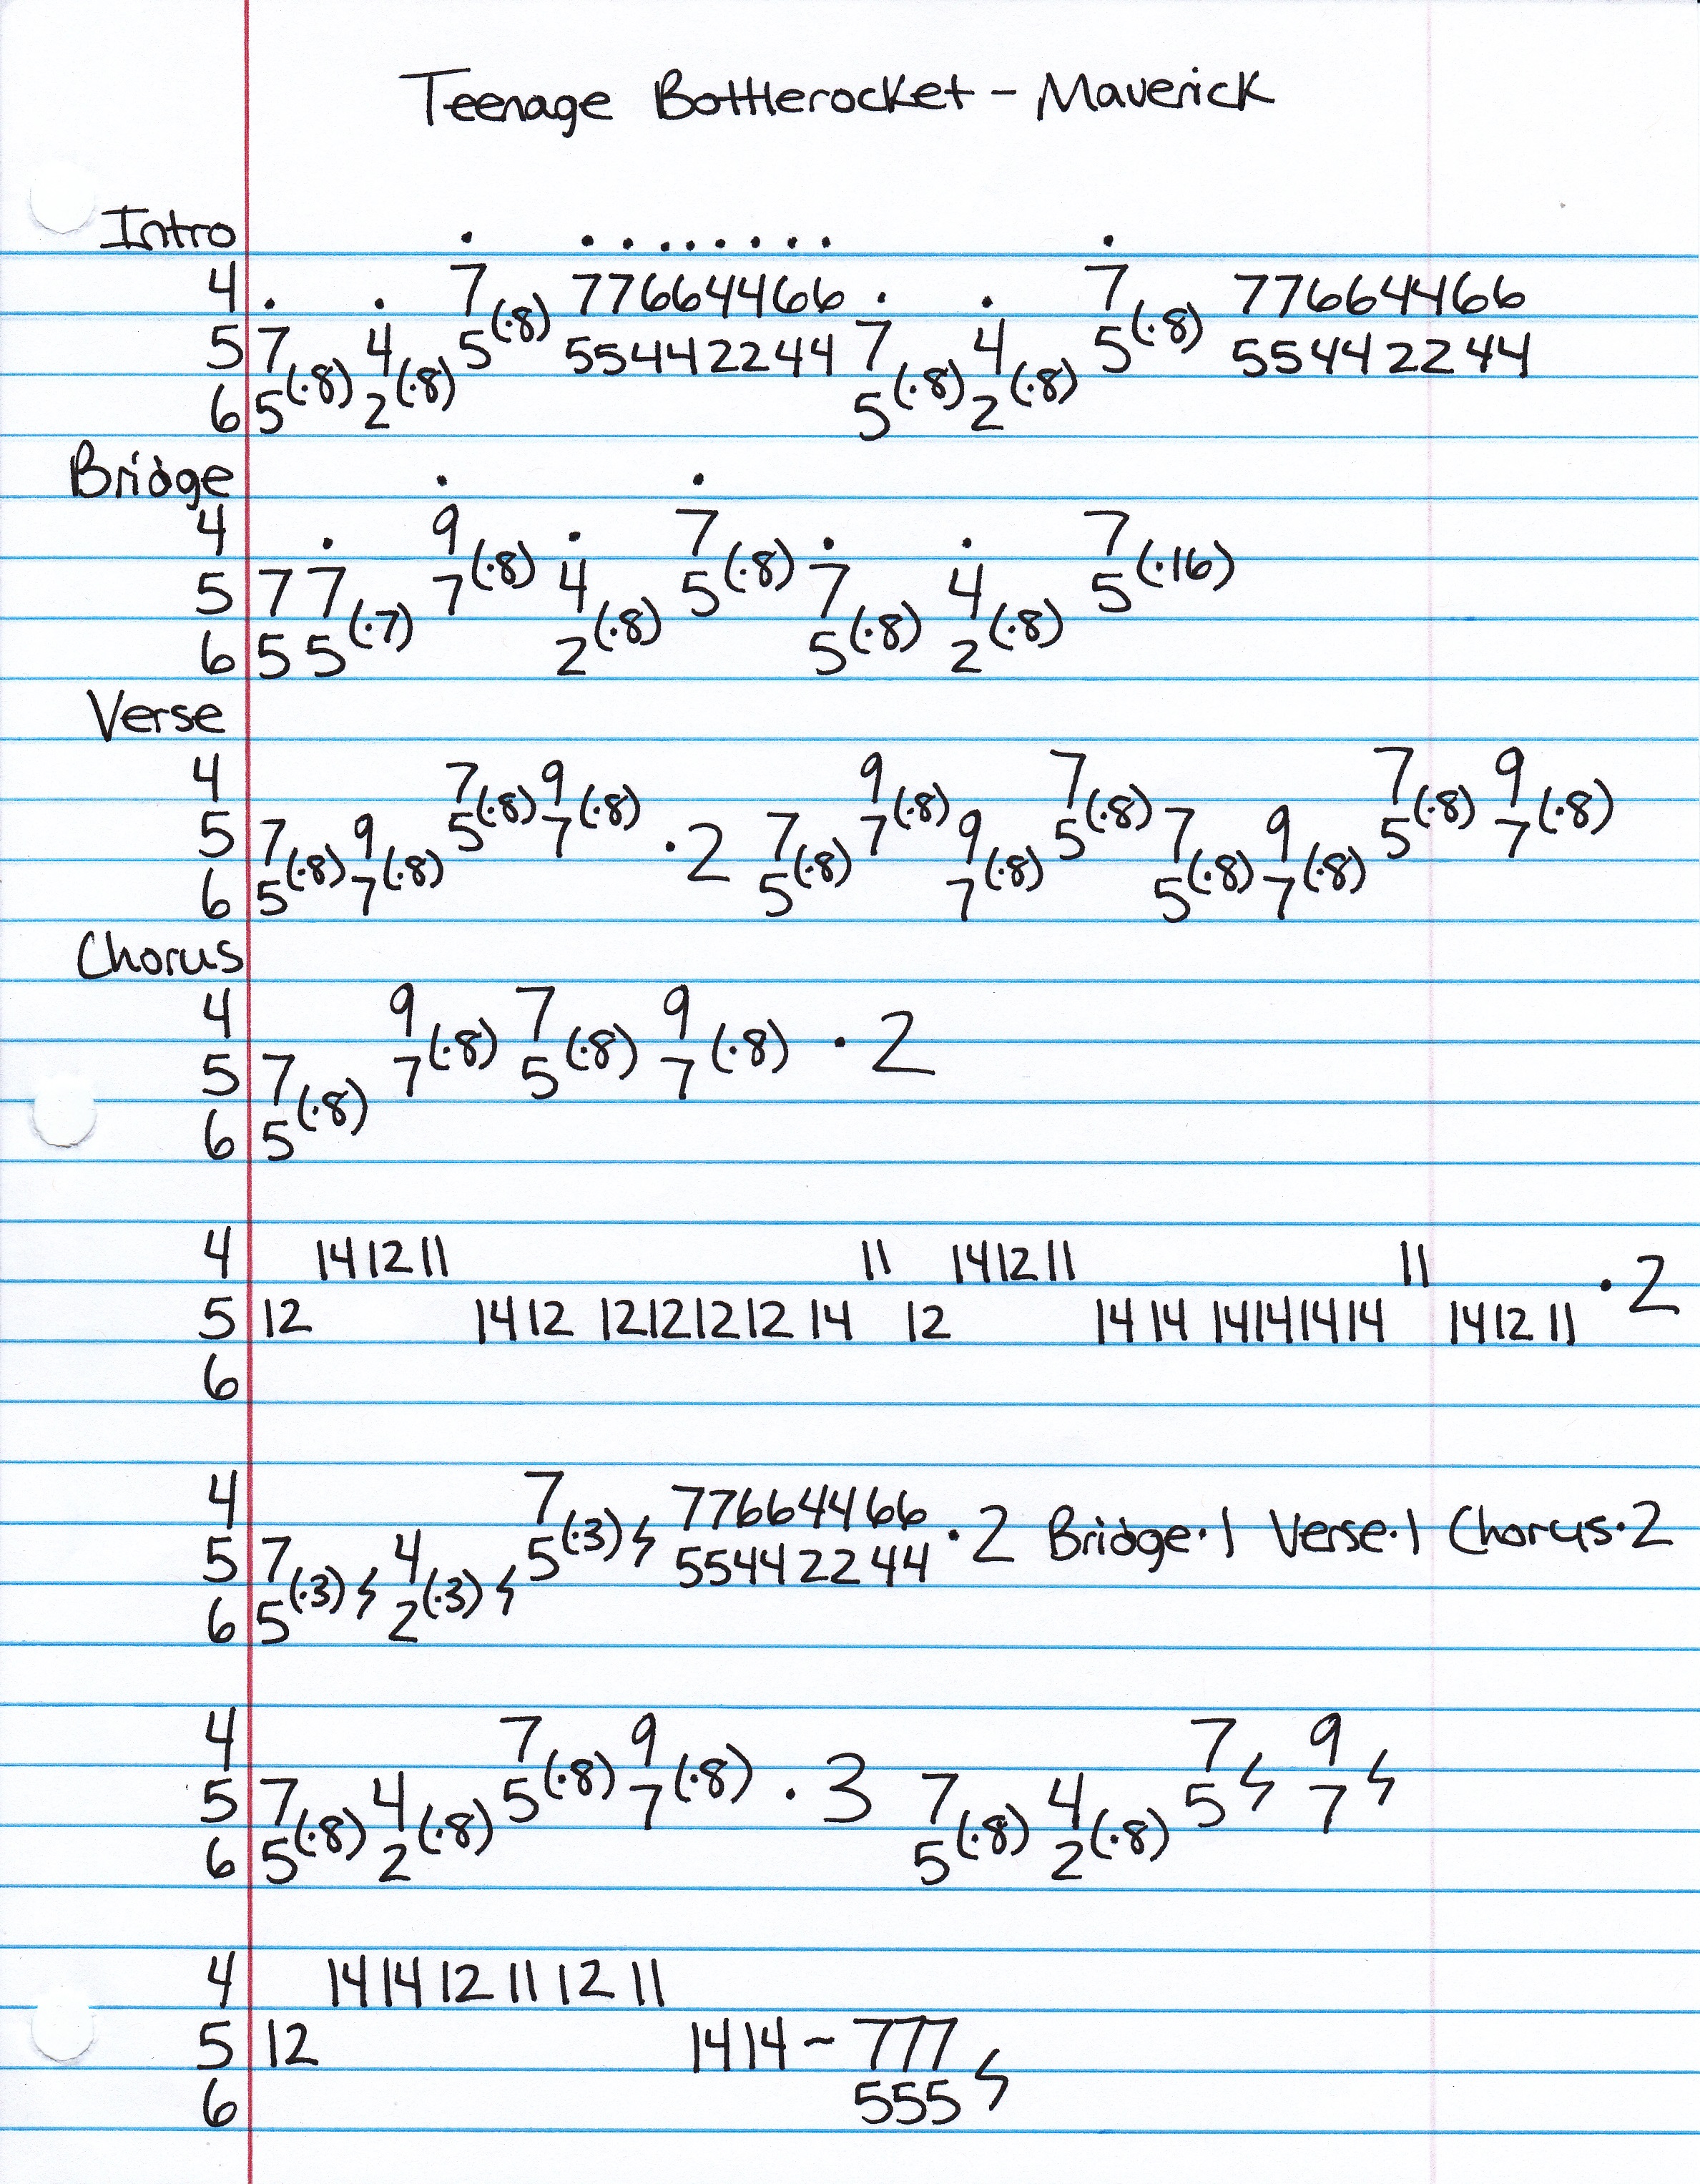 Teenage Bottlerocket - Maverick
Intro
4 7 77664466 7 77664466
5 7 4 5(·8) 55442244 7 4 5(·8) 55442244
6 5(·8) 2(·8) 5(·8) 2(·8)
Bridge
4 9 7 7
5 7 7 7(·8) 4 5(·8) 7 4 5(·16)
6 5 5(·7) 2(·8) 5(·8) 2(·8)
Verse
4 7 9 9 7 7 9
5 7 9 5(·8) 7(·8) ·2 7 7(·8) 9 5(·8) 7 9 5(·8) 7(·8)
6 5(·8) 7(·8) 5(·8) 7(·8) 5(·8) 7(·8)
Chorus
4 9 7 9
5 7 7(·8) 5(·8) 7(·8) ·2
6 5(·8)
4 14 12 11 11 14 12 11 11
5 12 14 12 12 12 12 12 14 12 14 14 14 14 14 14 14 12 11 ·2
6
4 7 77664466
5 7 4 5(·3) ϟ 55442244 ·2 Bridge·1 Verse·1 Chorus·2
6 5(·3) ϟ 2(·3) ϟ
4 7 9 7 9
5 7 4 5(·8) 7(·8) ·3 7 4 5 ϟ 7 ϟ
6 5(·8) 2(·8) 5(·8) 2(·8)
4 14 14 12 11 12 11
5 12 14 14 ~ 777
6 555 ϟ